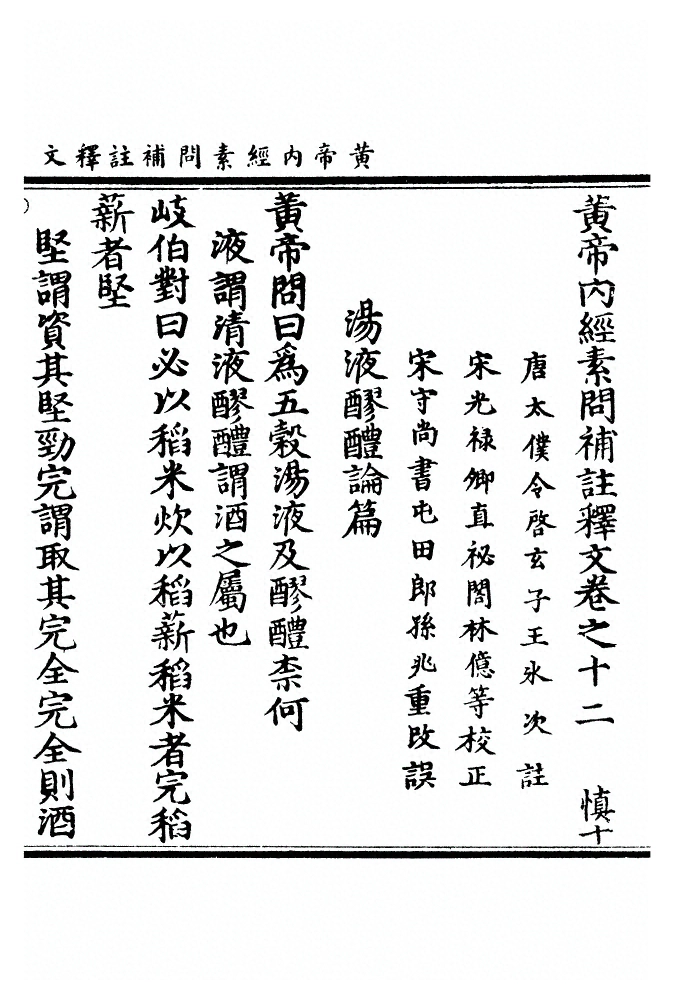 黄帝內經素問補註釋文
黃帝內經素問補註釋文卷之十二 慎十
唐太僕令啓玄子王氷次註
宋光祿卿直祕閣林億等校正
宋守尚書屯田郎孫兆重改誤
湯液醪醴論篇
黃帝問曰爲五穀湯液及醪醴柰何
液謂清液醪醴謂酒之屬也
岐伯對曰必以稻米炊以稻薪稻米者完稻
薪者堅
堅謂資其堅勁完謂取其完全完全則酒